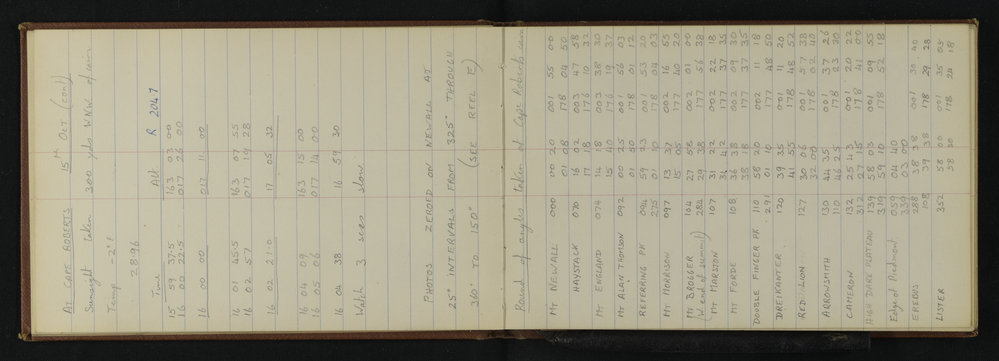 At CAPE ROBERTS 15th OCT (cont)
Sunsight taken 300 yds WNW of cairn
Temp -2°F
28.96
Time Alt R 2047
15 59 37.5 163 03 00
16 00 22.5 017 26 00
16 00 00 017 11 00
16 01 45.5 163 07 55
16 02 57 017 19 28
16 02 21.0 17 05 32
16 04 09 163 15 00
16 05 06 017 14 00
16 04 38 16 59 30
Watch 3 secs slow.
PHOTOS ZEROED ON NEWALL AT
25° INTERVALS FROM 325° THROUGH
360° TO 150° (SEE REEL E)
Round of angles taken at Cape Roberts cairn
Mt NEWALL 000 00 20 001 55 00
01 08 178 04 50
HAYSTACK 070 16 02 003 47 58
17 18 176 10 32
Mt ENGLAND 074 14 18 003 38 30
15 40 176 19 37
Mt ALAN THOMSON 092 00 25 001 56 03
01 50 178 01 12
REFERRING PK 094 59 23 001 53 20
275 01 10 178 04 03
Mt MORRISON 097 13 37 002 16 55
15 05 177 40 20
Mt BROGGER 104 27 58 002 01 00
(W end of summit) 284 29 38 177 56 38
Mt MARSTON 107 31 22 002 22 18
34 42 177 37 35
Mt FORDE 108 36 38 002 09 30
38 18 177 37 35
DOUBLE FINGER PK 110 58 20 002 11 18
291 01 10 177 48 50
DREIKANTER 120 39 41 001 11 20
41 55 178 48 52
RED LION 127 30 06 001 57 38
32 00 178 02 20
ARROWSMITH 130 44 35 001 37 26
110 46 25 178 23 20
CAMERON 132 25 43 001 20 22
312 27 15 178 41 00
HIGH DARK PLATEAU 139 58 03 001 09 53
319 59 10 178 52 18
Edge of Piedmont 04 40
03 00
EREBUS 288 38 38 001 30 40
108 39 38 178 29 28
LISTER 352 58 00 001 35 05
58 30 178 24 18